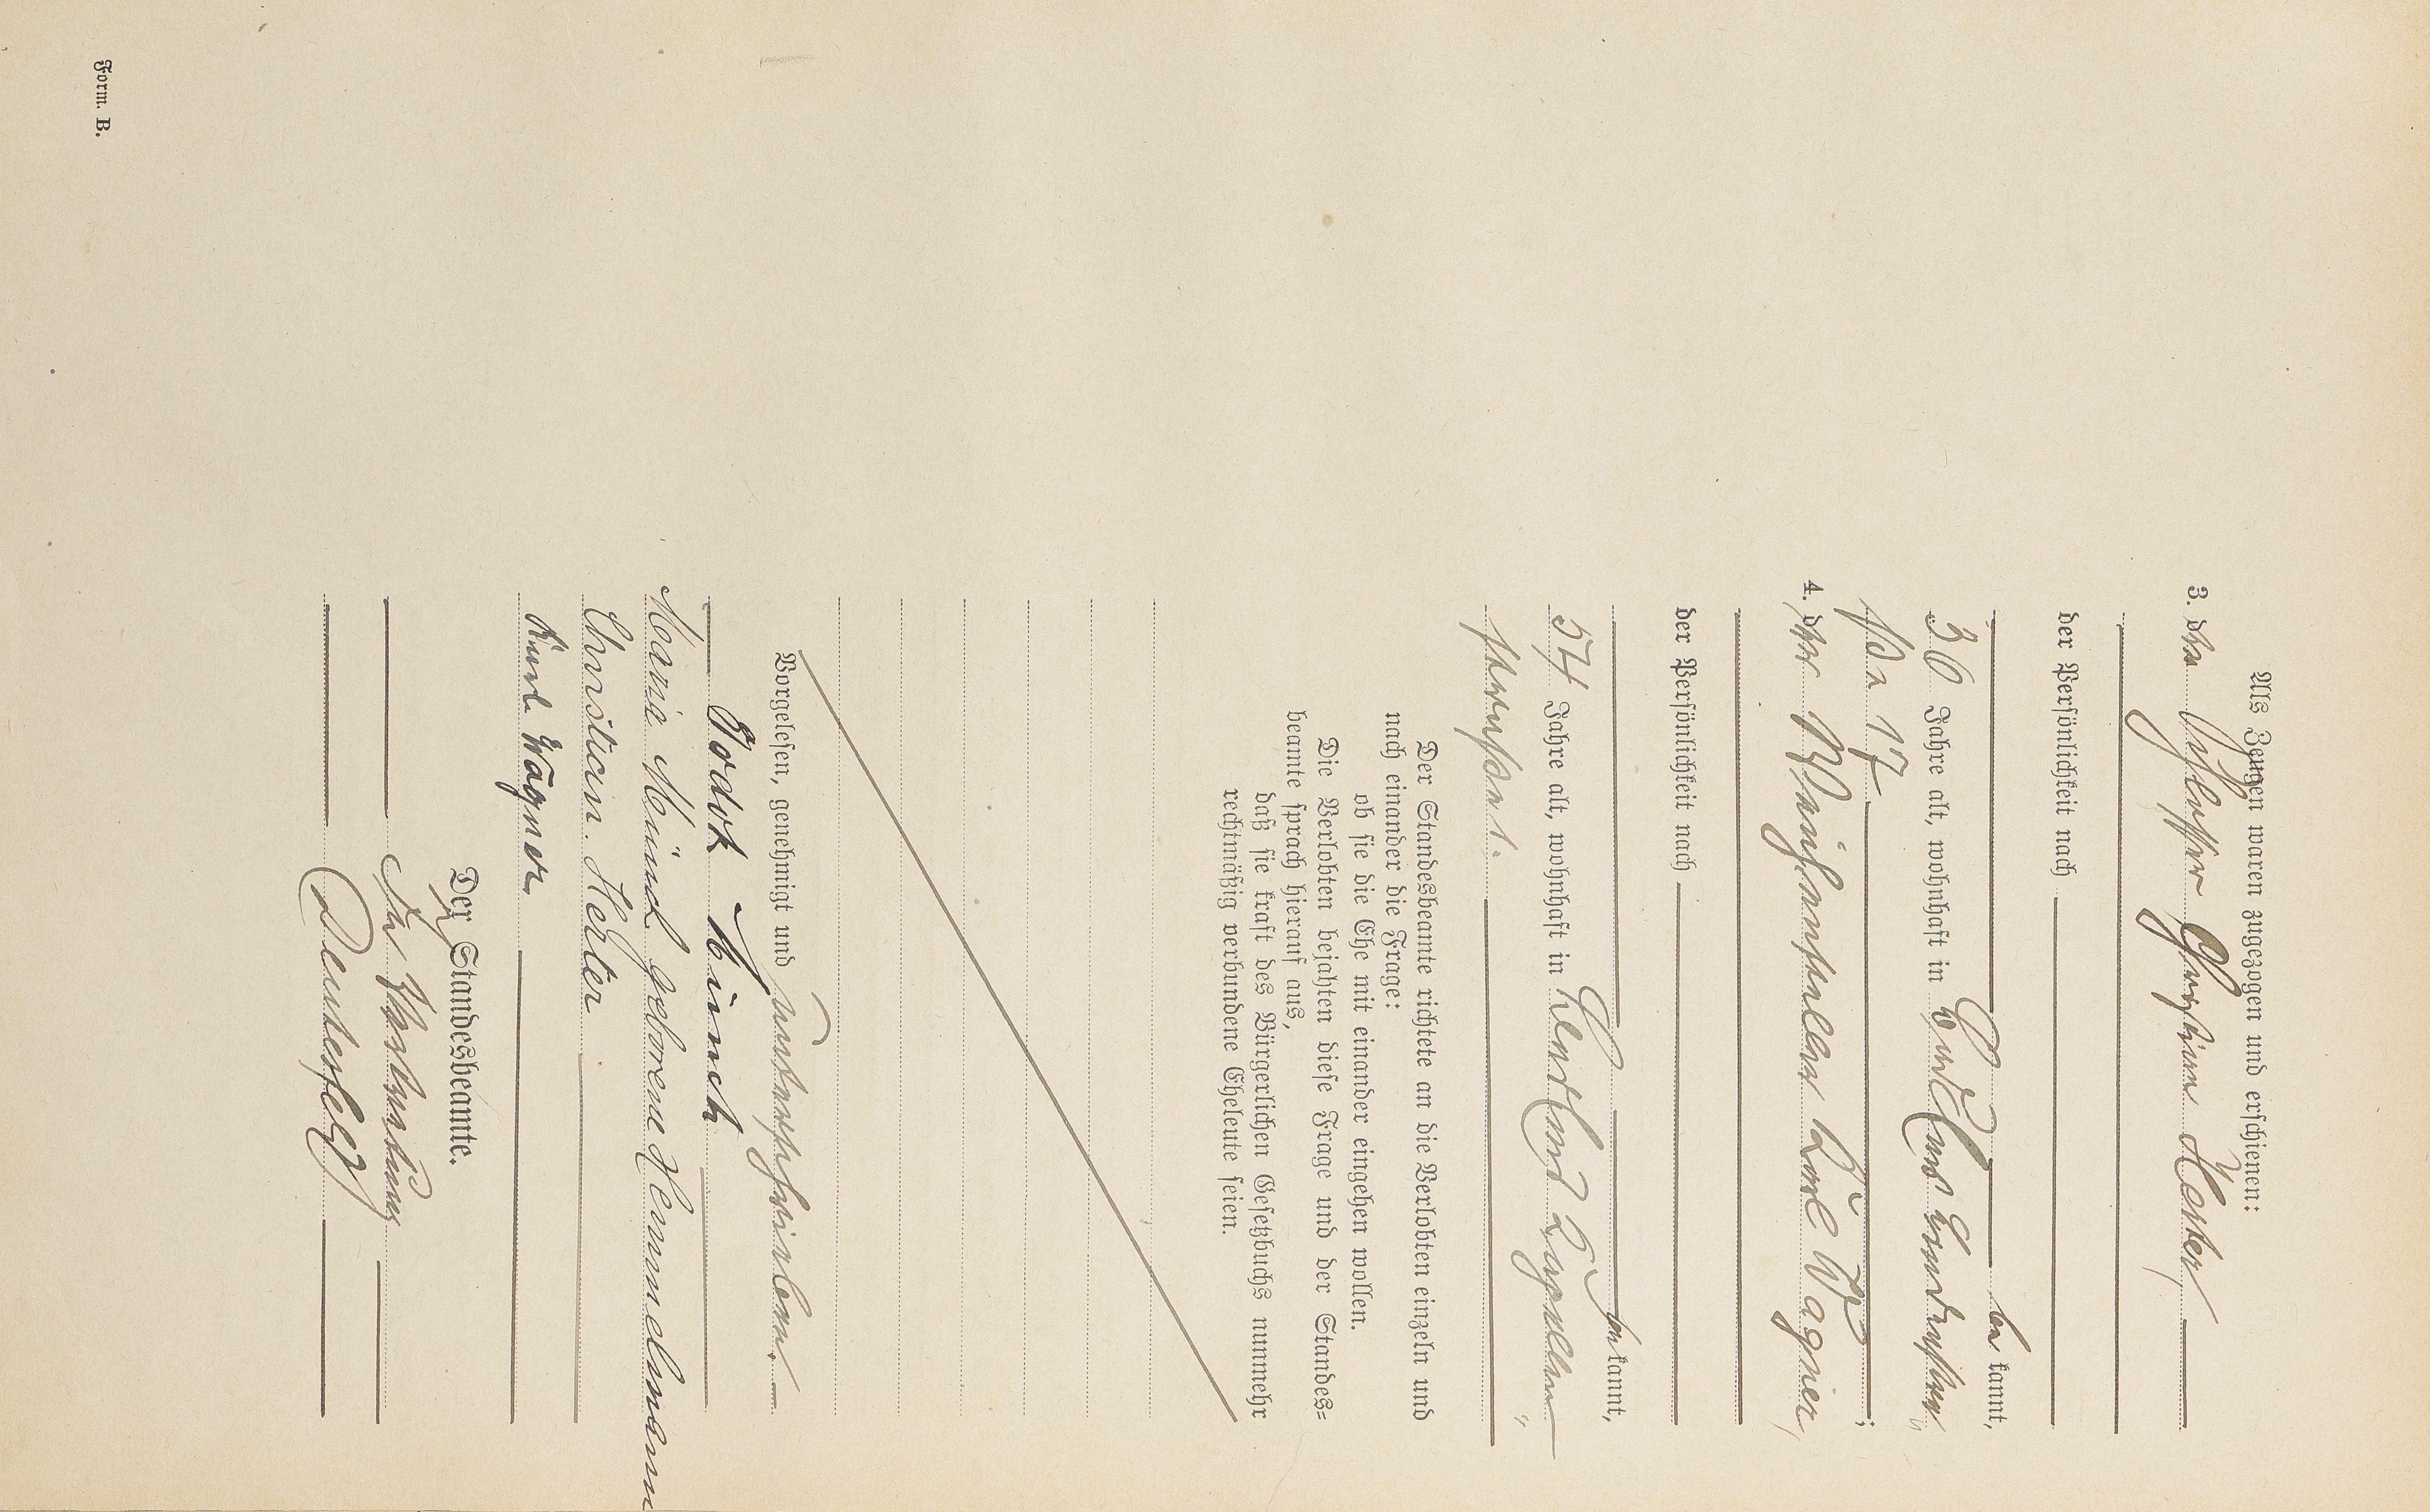 Als Zeugen waren zugezogen und erschienen:
3. der Schlosser Christian Herter
der Persönlichkeit nach
be kannt,
36 Jahre alt, wohnhaft in
17 ;
4. der Karl Wagner,
der Persönlichkeit nach
be kannt,
54 Jahre alt, wohnhaft in
Der Standesbeamte richtete an die Verlobten einzeln und
nach einander die Frage:
ob sie die Ehe mit einander eingehen wollen.
Die Verlobten bejahten diese Frage und der Standes=
beamte sprach hierauf aus,
daß sie kraft des Bürgerlichen Gesetzbuchs nunmehr
rechtmäßig verbundene Eheleute seien.
Vorgelesen, genehmigt und unterschrieben.
Maria Münch geborene Hemmelmann
Christian Herter
Karl Wagner
Der Standesbeamte.
In Vertretung
Form. B.